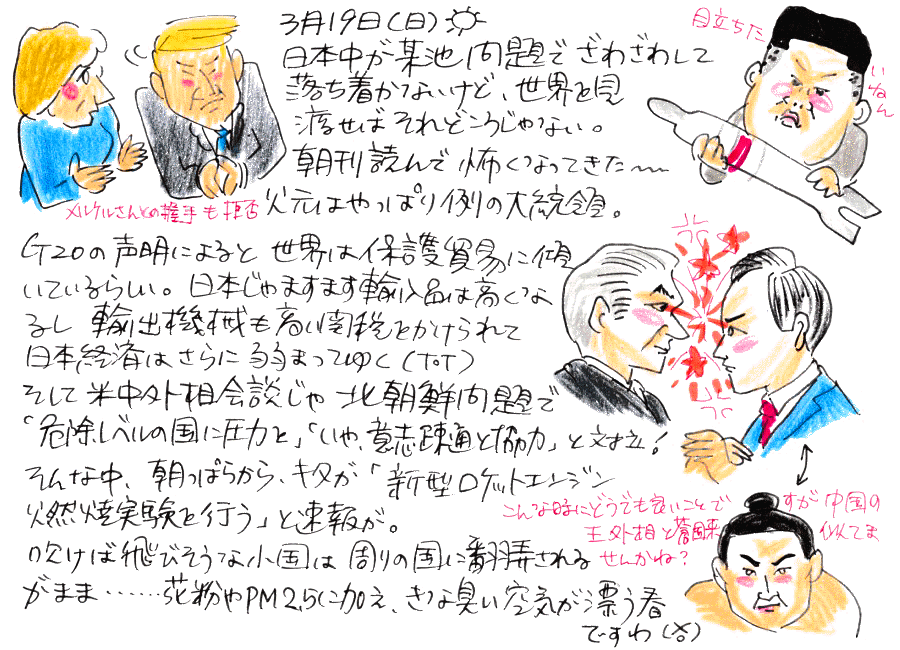 3月19日(日)
日本中が某池問題でざわざわして
落ち着かないけど、世界を見
渡せばそれどころじゃない。
朝刊読んで怖くなってきた〜
火元はやっぱり例の大統領。
メルケルさんとの握手も拒否
目立ちた
いねん
G20の声明によると世界は保護貿易に傾
いているらしい。日本じゃますます輸入品は高くな
るし輸出機械も高い関税をかけられて
日本経済はさらに弱まってゆく(ToT)
そして米中外相会談じゃ北朝鮮問題で
「危険レベルの国に圧力を」「いや、意志疎通と協力」と対立!
そんな中、朝っぱらから、キタが「新型ロケットエンジン
燃焼実験を行う」と速報が。
吹けば飛びそうな小国は周りの国に翻弄される
がまま……花粉やPM2.5に加え、きな臭い空気が漂う春
ですわ
こんな時にどうでも良いことで
すが中国の
王外相と蒼国来
似てま
せんかね?